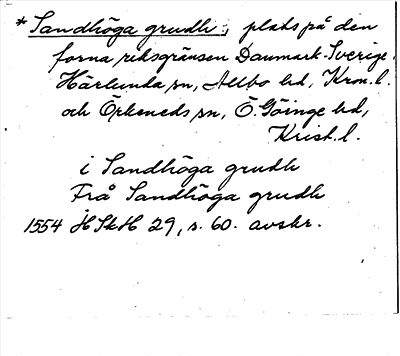 * Sandhöga grudh:, plats på den
forna riksgränsen Danmark-Sverige.
Härlunda sn, Allbo hd, Kron. l.
och Örkeneds sn, Ö. Göinge hd,
Krist. l.
i Sandhöga grudh
Frå Sandhöga grudh
1554 HSkH 29, s. 60. avskr.